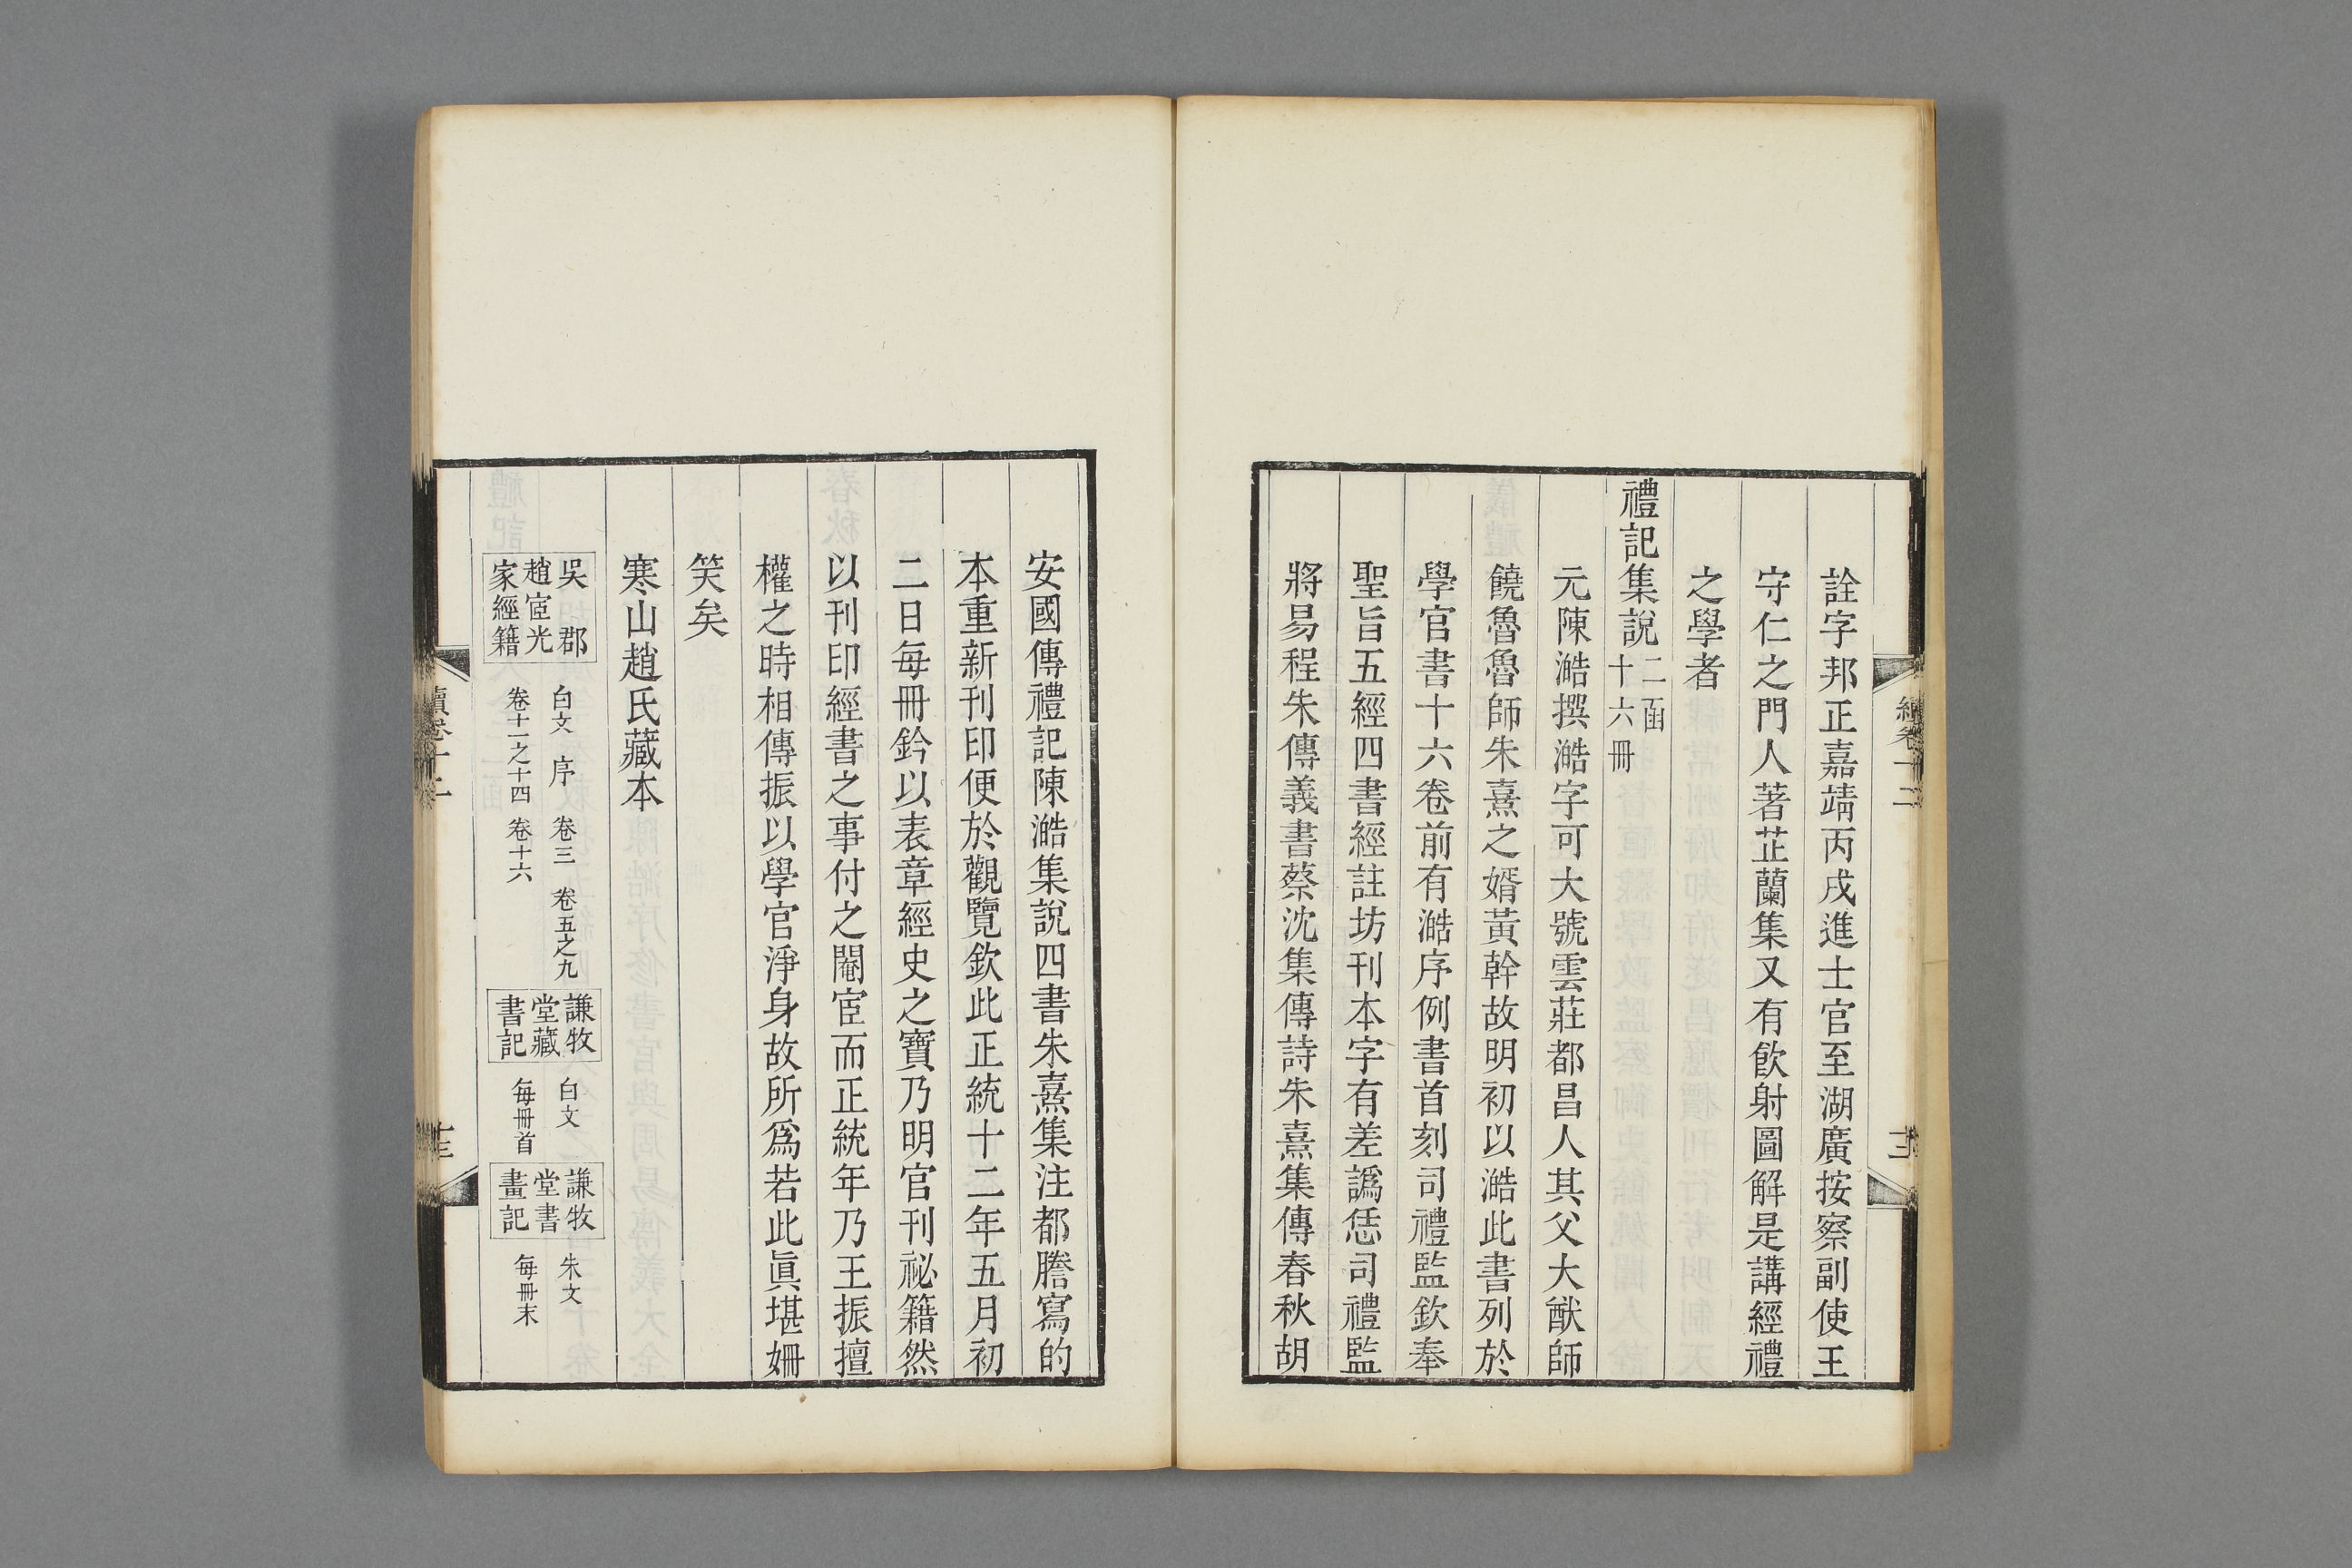 詮字邦正嘉靖丙戌進士官至湖廣按察副使王
守仁之門人著芷蘭集又有飲射圖解是講經禮
之學者
禮記集說二函十六冊
元陳澔撰澔字可大號雲莊都昌人其父大猷師
饒魯魯師朱熹之婿黃幹故明初以澔此書列於
學官書十六卷前有澔序例書首刻司禮監欽奉
聖旨五經四書經註坊刊本字有差譌恁司禮監
將易程朱傳義書蔡沈集傳詩朱熹集傳春秋胡
安國傳禮記陳澔集說四書朱熹集注都謄寫的
本重新刊印便於觀覽欽此正統十二年五月初
二日每冊鈐以表章經史之寶乃明官刊祕籍然
以刊印經書之事付之閹宦而正統年乃王振擅
權之時相傳振以學官淨身故所爲若此眞堪姍
笑矣
寒山趙氏藏本
吳郡
趙宧光
家經籍
白文 序 卷三 卷五之九
卷十一之十四 卷十六
謙牧
堂藏
書記
白文
每冊首
謙牧
堂書
畫記
朱文
每冊末